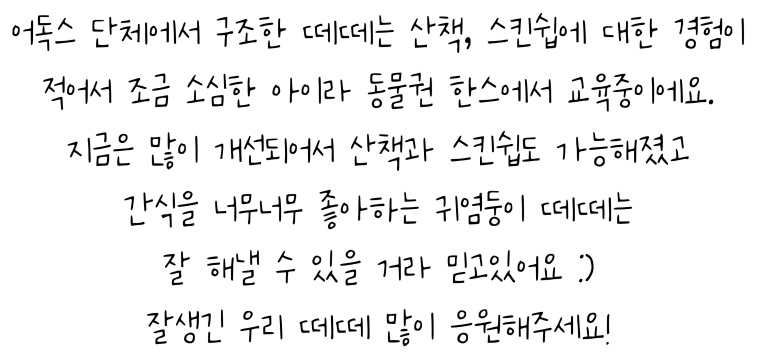 어독스 단체에서 구조한 떼떼는 산책, 스킨쉽에 대한 경험이
적어서 조금 소심한 아이라 동물권 한스에서 교육중이에요.
지금은 많이 개선되어서 산책과 스킨쉽도 가능해졌고
간식을 너무너무 좋아하는 귀염둥이 떼떼는
잘 해낼 수 있을 거라 믿고있어요 :)
잘생긴 우리 떼떼 많이 응원해주세요!